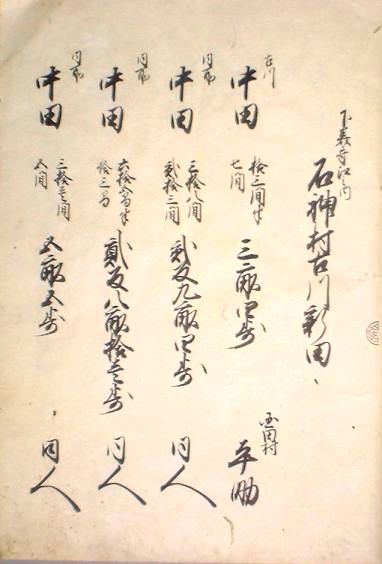 石神村古川新田
古川
中田
拾三間半
七間
三畝四歩
田村
平助
同所
中田
三拾八間
弐拾三間
弐反九畝四歩
同人
同所
中田
六拾五間半
拾三間
弐反八畝拾壱歩
同人
同所
中田
三拾壱間
五間
五畝五歩
同人